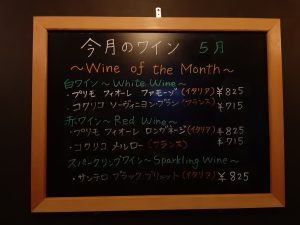 今月のワイン 5月
～Wine of the Month～
白ワイン～White Wine～
・プリモ フィオーレ ファモーゾ (イタリア) ¥825
・コクリコ ソーヴィニヨン・ブラン (フランス) ¥715
赤ワイン～Red Wine～
・プリモ フィオーレ ロンガネージ (イタリア) ¥825
・コクリコ メルロー (フランス) ¥715
スパークリングワイン～Sparkling Wine～
・サンテロ ブラック ブリュット (イタリア) ¥825